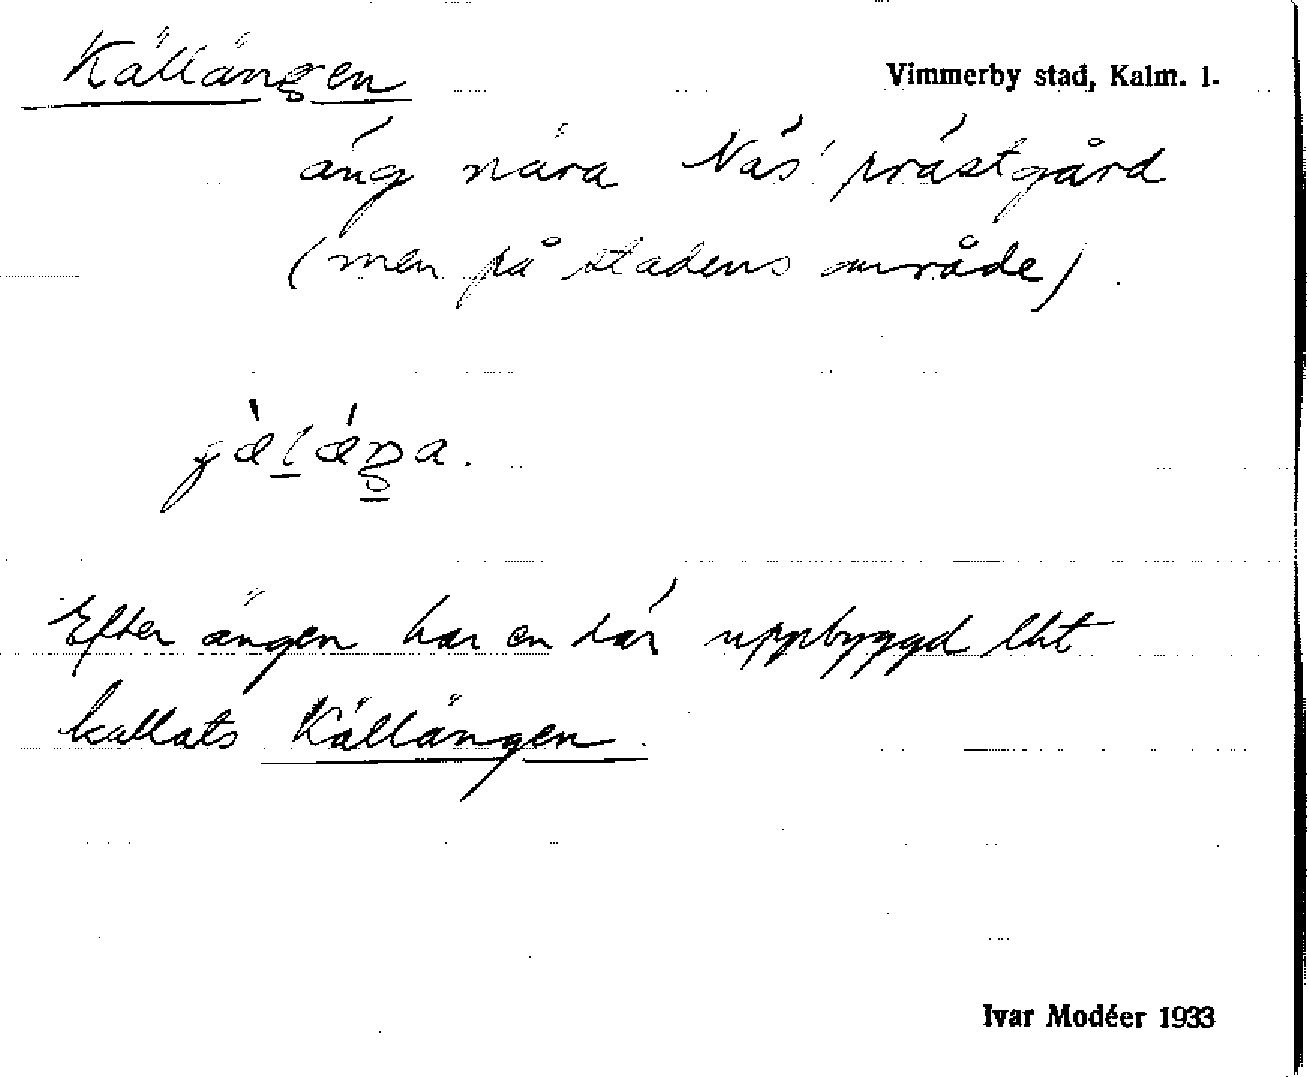 Källängen
Vimmerby stad, Kalm. l.
äng nära Näs' prästgård
(men på stadens område).
Efter ängen har en där uppbyggd lht
kallats Källängen.
Ivar Modéer 1933